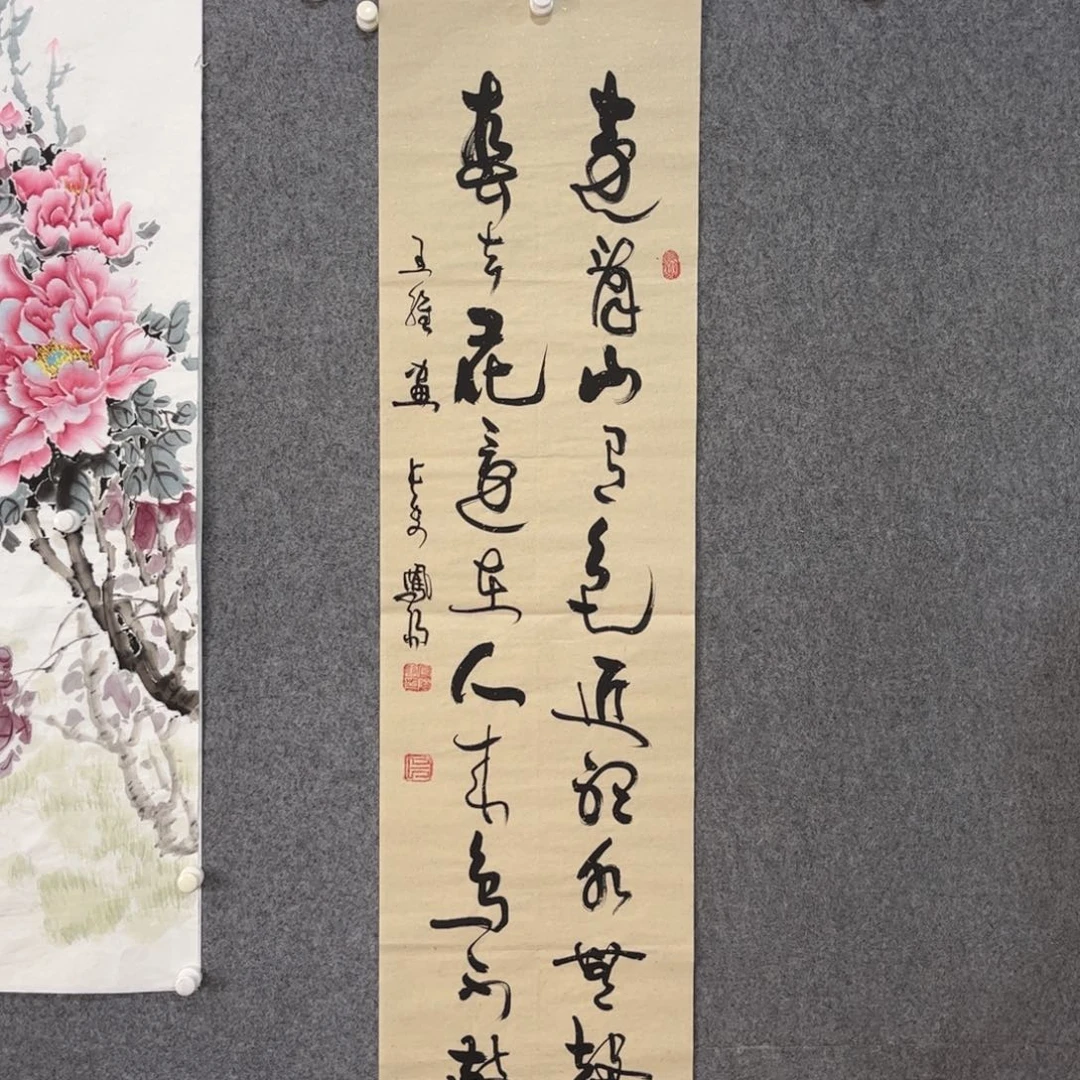 遠看山有色近聽水無聲
春去花還在人來鳥不驚
王維畫